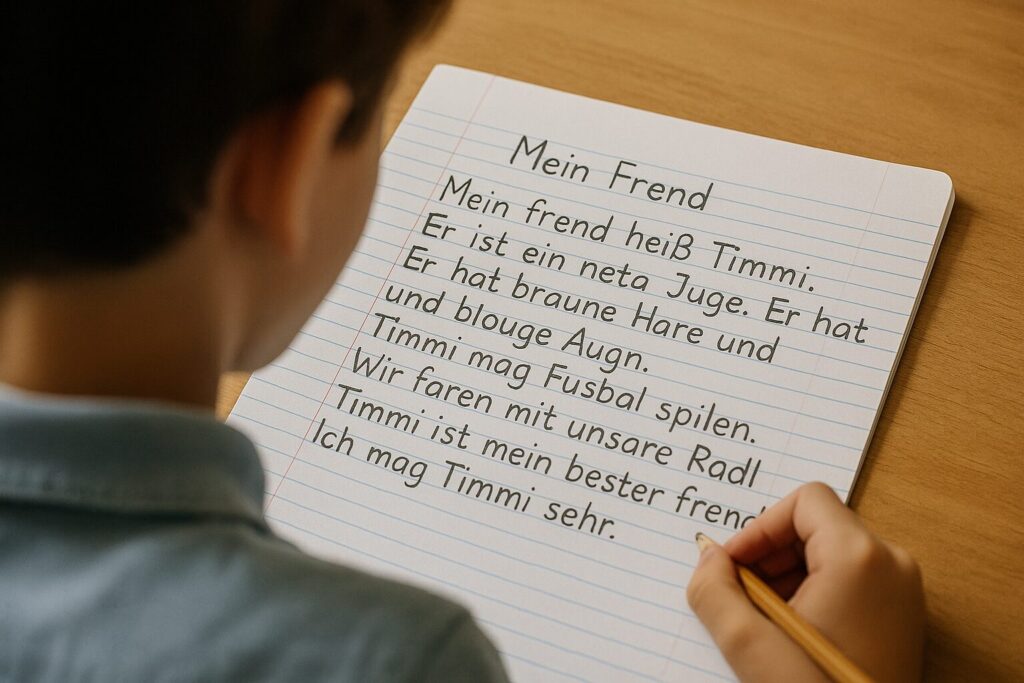 Mein Frend
Mein frend heiß Timmi.
Er ist ein neta Juge. Er hat
Er hat braune Hare und
und blouge Augn.
Timmi mag Fusbal spilen.
Wir faren mit unsare Radl
Timmi ist mein bester frend
Ich mag Timmi sehr.